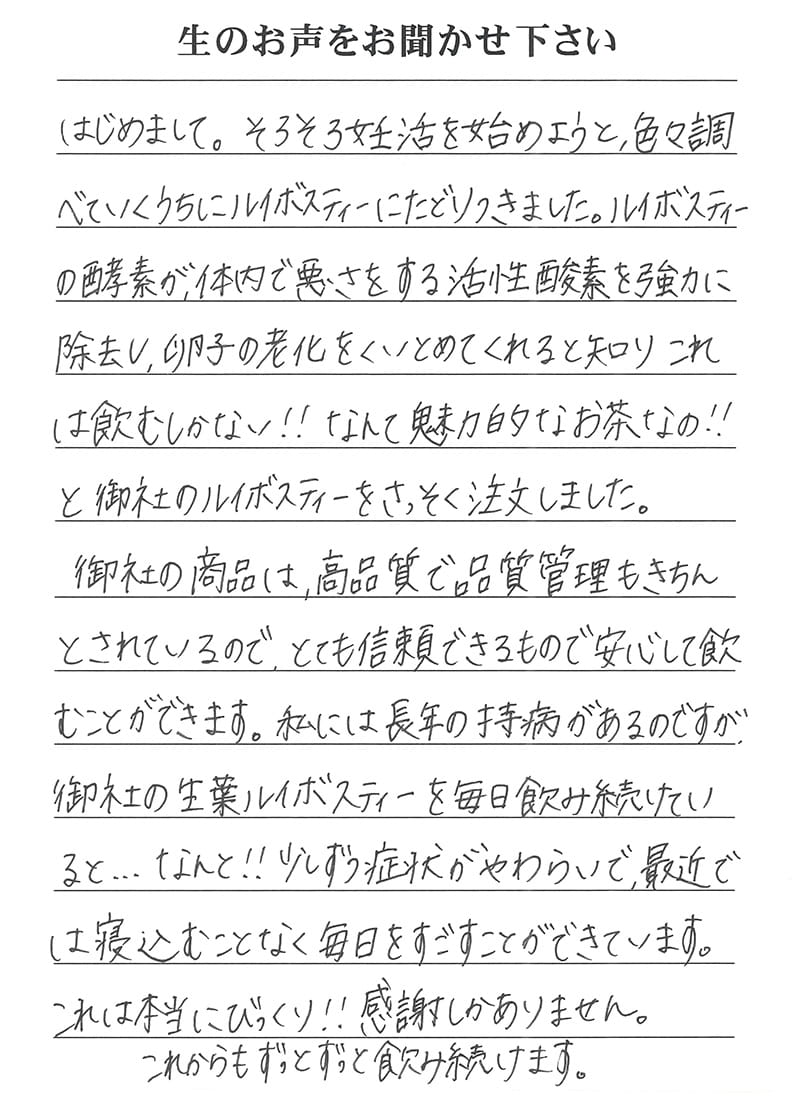 生のお声をお聞かせ下さい
はじめまして。そろそろ妊活を始めようと,色々調
べていくうちにルイボスティーにたどりつきました。ルイボスティー
の酵素が,体内で悪さをする活性酸素を強力に
除去し,卵子の老化をくいとめてくれると知り これ
は飲むしかない!! なんて魅力的なお茶なの!!
と 御社のルイボスティーをさっそく注文しました。
御社の商品は,高品質で品質管理もきちん
とされているので,とても信頼できるもので安心して飲
むことができます。私には長年の持病があるのですが,
御社の生葉ルイボスティーを毎日飲み続けてい
ると…なんと!! 少しずつ症状がやわらいで,最近で
は寝込むことなく毎日をすごすことができています。
これは本当にびっくり!! 感謝しかありません。
これからもずっとずっと飲み続けます。